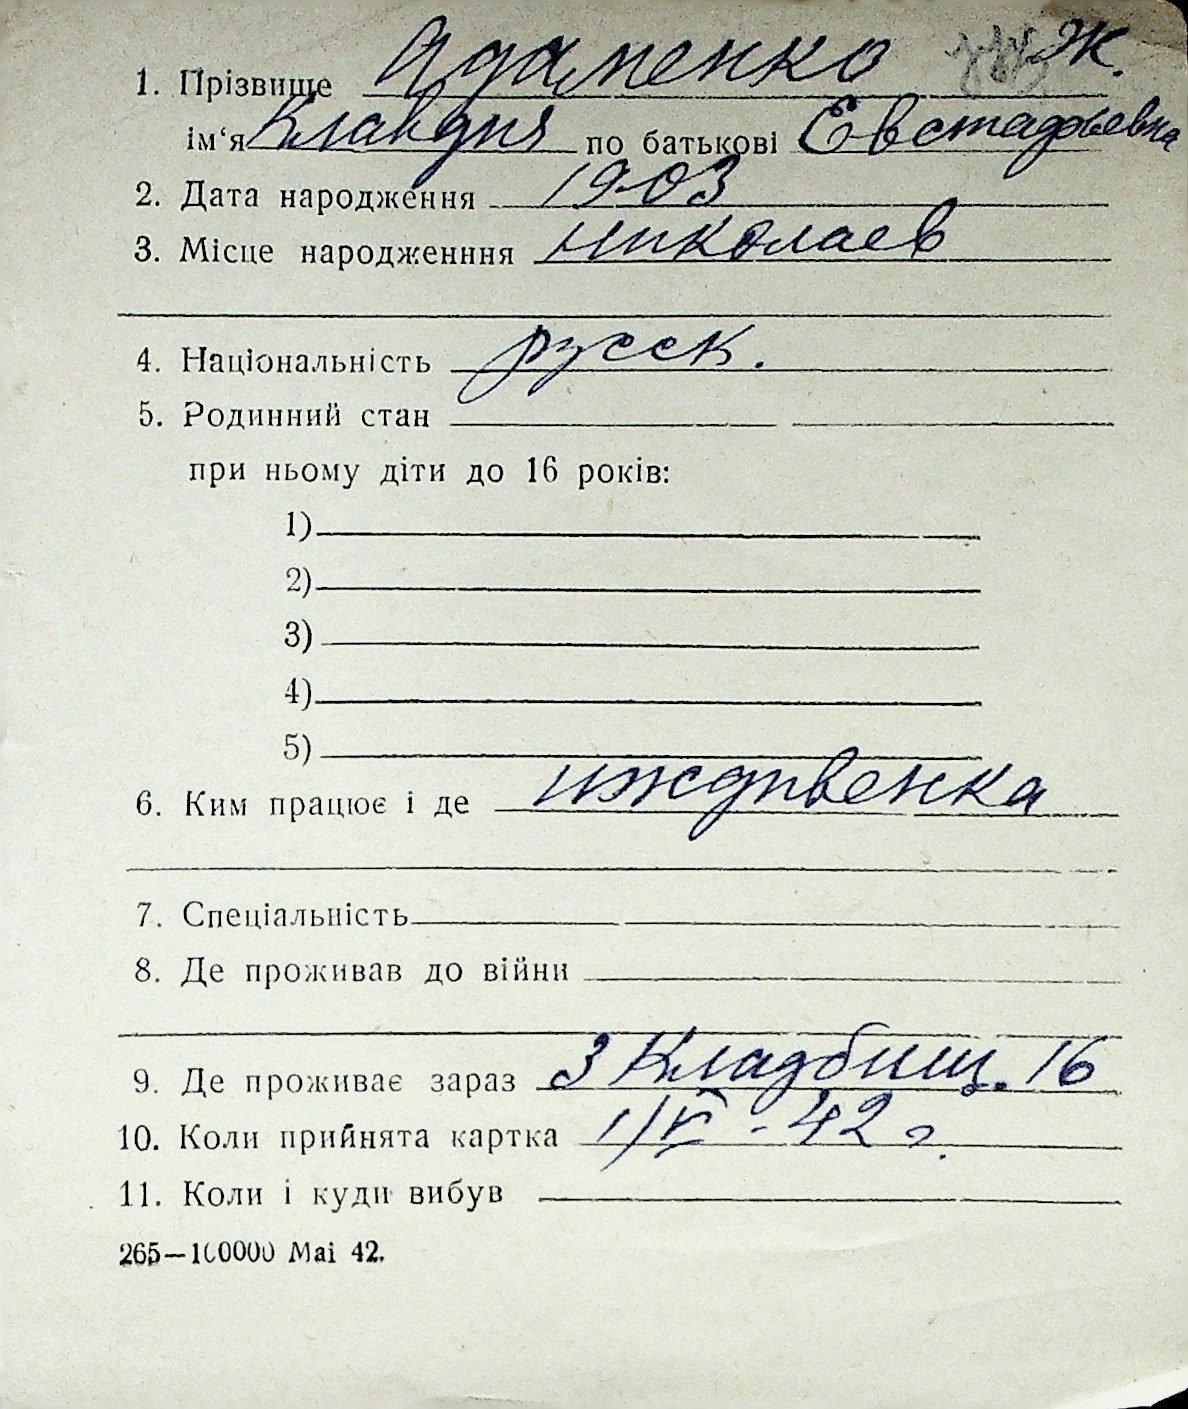 1. Прізвище Адаменко Ж.
ім‘я Клавдия по батькові Евстафьевна
2. Дата народження 1903
3. Місце народженння Николаев
4. Національність русск.
5. Родинний стан
при ньому діти до 16 років:
1)
2)
3)
4)
5)
6. Ким працює і де иждивенка
7. Спеціальність
8. Де проживав до війни
9. Де проживає зараз 3 Кладбищ. 16
10. Коли прийнята картка 1/VI - 42 г.
11. Коли і куди вибув
265—100000 Mai 42.